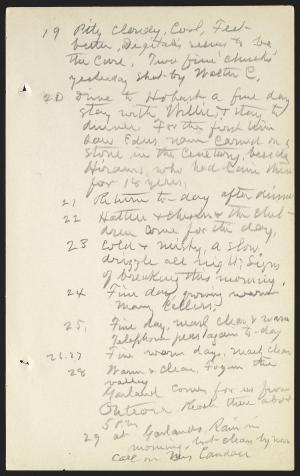 19 Ptly cloudy, Cool, Feel
better, Digitalis seems to be
the cure. Two fine chucks
yesterday shot by Walter C.
20 Drive to Hobart a fine day
stay with Willie, & stay to
dinner. For the first time
saw Eden's name carved on a
stone in the Cemetery, beside
Hiram's, who had been there
for 18 years.
21 Return to-day after dinner
22 Hattie & & the chil-
dren come for the day.
23 Cold & misty, a slow
drizzle all night; signs
of breaking this morning.
24 Fine day, growing warm
Many callers.
25, Fine day, much clear & warm
Telephone to-day
26.27 Fine warm days, much clear
28 Warm & clear, Fog in the
valley
Garland comes for us from
Onteora Reach there about
5 P.m
29 at Garlands, Rain in
morning, but clear by noon
Call on Miss